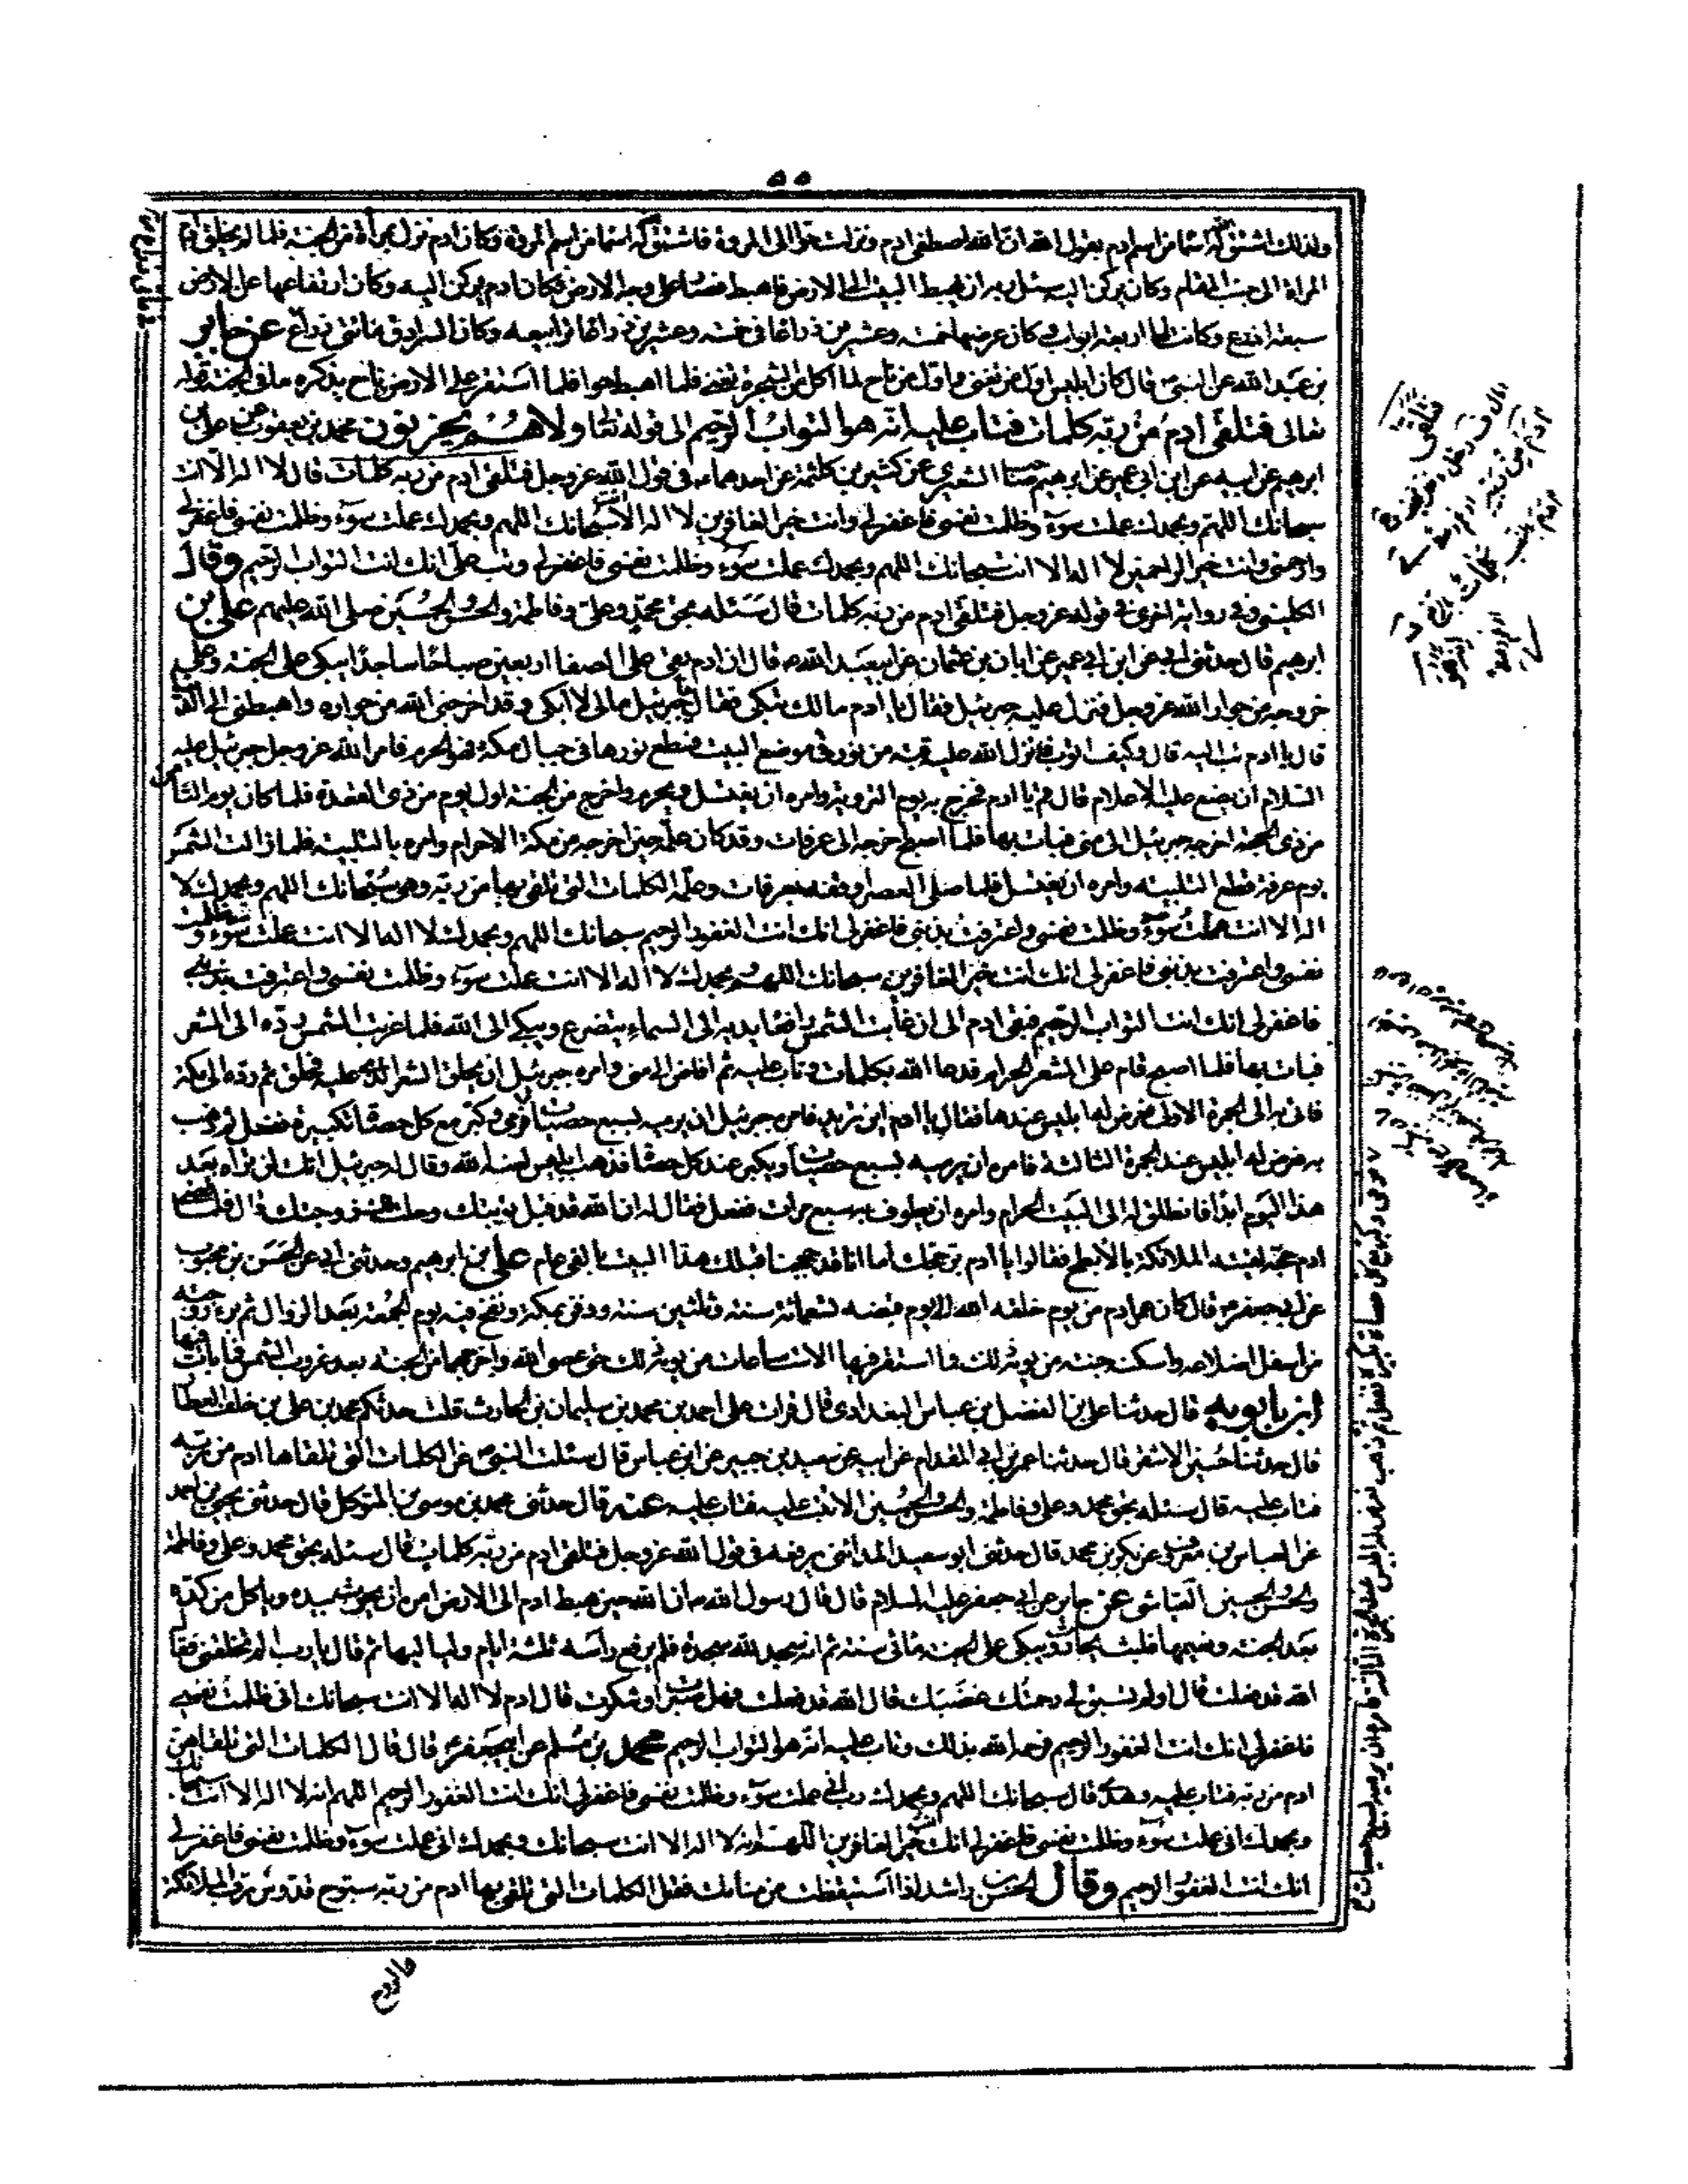 ٥٥
ولذلك اشتق له اسما من اسم ادم بقول الله ان الله اصطفى ادم ونزلت حوا الى المروة فاشتق له اسما من اسم المروة وكان ادم نزل بمرأة من الجنة فلما لم يخلق
المراة الى جنب المقام وكان يركن اليه سئل ربه ان يهبط البيت الى الارض فاهبط فصار على وجه الارض فكان ادم يركن اليه وكان ارتفاعها عن الارض
سبعة اذرع وكانت لها اربعة ابواب وكان عرضها خمسة وعشرين ذراعا في خمسة وعشرين ذراعا ترابيعه وكان السرادق مائتي ذراع عن جابر
بن عبد الله عن النبي قال كان ابليس اول من تغنى واول من ناح لما اكل من الشجرة تغنى فلما اهبط حوا فلما استقر على الارض ناح يذكره ما في الجنة قوله
تعالى فتلقى ادم من ربه كلمات فتاب عليه انه هو التواب الرحيم الى قوله تعالى ولا هم يحزنون محمد بن يعقوب عن على بن
ابرهيم عن ابيه عن ابن ابي عمير عن ابرهيم صاحب الشعيري عن كثير بن كلثمة عن احدهما ع في قول الله عز وجل فتلقى ادم من ربه كلمات قال لا اله الا انت
سبحانك اللهم وبحمدك عملت سوء وظلمت نفسي فاغفر لي وانت خير الغافرين لا اله الا انت سبحانك اللهم وبحمدك عملت سوء وظلمت نفسي فاغفر لي
وارحمني وانت خير الراحمين لا اله الا انت سبحانك اللهم وبحمدك عملت سوء وظلمت نفسي فاغفر لي وتب على انك انت التواب الرحيم وقال
الكليني وفي رواية اخرى في قوله عز وجل فتلقى ادم من ربه كلمات قال سئله بحق محمد وعلى وفاطمة والحسن والحسين صلى الله عليهم على بن
ابرهيم قال حدثني ابي عن ابن ابي عمير عن ابان بن عثمان عن ابيعبد الله ع قال ان ادم بقى على الصفا اربعين صباحا ساجدا يبكى على الجنة وعلى
خروجه من جوار الله عز وجل فنزل عليه جبرئيل فقال يا ادم مالك تبكى فقال يا جبرئيل مالى لا ابكى وقد اخرجنى الله من جواره واهبطنى الى الدنيا
قال يا ادم تب اليه قال وكيف اتوب فانزل الله عليه قبة من نور في موضع البيت فسطع نورها في جبال مكة فهو الحرم فامر الله عز وجل جبرئيل عليه
السلام ان يضع عليه الاعلام قال قم يا ادم فخرج به يوم التروية وامره ان يغتسل ويحرم واخرج من الجنة اول يوم من ذى القعدة فلما كان يوم الثامن
من ذى الحجة اخرجه جبرئيل الى منى فبات بها فلما اصبح اخرجه الى عرفات وقد كان علمه حين اخرجه من مكة الاحرام وامره بالتلبية فلما زالت الشمس
يوم عرفة قطع التلبية وامره ان يغتسل فلما صلى العصر اوقفه بعرفات وعلمه الكلمات التى تلقى بها من ربه وهى سبحانك اللهم وبحمدك لا
اله الا انت عملت سوء وظلمت نفسي واعترفت بذنبي فاغفر لي انك انت الغفور الرحيم سبحانك اللهم وبحمدك لا اله الا انت عملت سوء وظلمت
نفسي واعترفت بذنبي فاغفر لي انك انت خير الغافرين سبحانك اللهم وبحمدك لا اله الا انت عملت سوء وظلمت نفسي واعترفت بذنبي
فاغفر لي انك انت التواب الرحيم فبقى ادم الى ان غابت الشمس رافعا يديه الى السماء يتضرع ويبكى الى الله فلما غربت الشمس رده الى المشعر
فبات بها فلما اصبح قام على المشعر الحرام فدعا الله بكلمات وتاب عليه ثم افاض الى منى وامره جبرئيل ان يحلق الشعر الذى عليه فحلق ثم رده الى مكة
فاتى به الى الجمرة الاولى فعرض له ابليس عندها فقال يا ادم اين تريد فامره جبرئيل ان يرميه بسبع حصيات فرمى وكبر مع كل حصاة تكبيرة ففعل ثم ذهب
به فعرض له ابليس عند الجمرة الثالثة فامره ان يرميه بسبع حصيات ويكبر عند كل حصاة فذهب ابليس لعنه الله وقال له جبرئيل انك لن تراه بعد
هذا اليوم ابدا فانطلق به الى البيت الحرام وامره ان يطوف به سبع مرات ففعل فقال له ان الله قد قبل توبتك وحلت لك زوجتك قال فلما قضى
ادم حجه لقيته الملائكة بالابطح فقالوا يا ادم بر حجك اما انا قد حججنا قبلك هذا البيت بالفى عام على بن ابرهيم وحدثني ابي عن الحسن بن محبوب
عن ابي جعفر ع قال كان عمر ادم من يوم خلقه الله الى يوم قبضه تسعمائة سنة وثلثين سنة ودفن بمكة ونفخ فيه يوم الجمعة بعد الزوال ثم برء زوجته
من اسفل اضلاعه واسكنه جنته من يومه ذلك فما استقر فيها الا ست ساعات من يومه ذلك حتى عصى الله واخرجهما من الجنة بعد غروب الشمس فما بات فيها
ابن بابويه قال حدثنا على بن الفضل بن عباس البغدادى قال قرات على احمد بن محمد بن سليمان بن الحارث قلت حدثكم محمد بن على بن خلف العطار
قال حدثنا حسين الاشقر قال حدثنا عمرو بن ابي المقدام عن ابيه عن سعيد بن جبير عن ابن عباس قال سئلت النبي ص عن الكلمات التى تلقاها ادم من ربه
فتاب عليه قال سئله بحق محمد وعلى وفاطمة والحسن والحسين الا تبت عليه فتاب عليه عنه قال حدثني محمد بن موسى بن المتوكل قال حدثني يحيى بن احمد
عن العباس بن معروف عن بكر بن محمد قال حدثني ابو سعيد المدائنى يرفعه في قول الله عز وجل فتلقى ادم من ربه كلمات قال سئله بحق محمد وعلى وفاطمة
والحسن والحسين العياشى عن جابر عن ابي جعفر عليه السلام قال قال رسول الله ص ان الله حين اهبط ادم الى الارض امره ان يحرث بيده وياكل من كده
بعد الجنة ونعيمها فلبث يجأر ويبكى على الجنة مائتى سنة ثم انه سجد لله سجدة فلم يرفع راسه ثلثة ايام ولياليها ثم قال يا رب الم تخلقنى فقال
الله قد فعلت قال اولم تسبق لى رحمتك غضبك قال الله قد فعلت فهل صبرت او شكرت قال ادم لا اله الا انت سبحانك انى ظلمت نفسي
فاغفر لي انك انت الغفور الرحيم فرحمه الله بذلك وتاب عليه انه هو التواب الرحيم محمد بن مسلم عن ابيجعفر ع قال قال الكلمات التى تلقاهن
ادم من ربه فتاب عليه وهدى قال سبحانك اللهم وبحمدك رب انى عملت سوء وظلمت نفسي فاغفر لي انك انت الغفور الرحيم اللهم انه لا اله الا انت سبحانك
وبحمدك انى عملت سوء وظلمت نفسي فاغفر لي انك خير الغافرين اللهم انه لا اله الا انت سبحانك وبحمدك انى عملت سوء وظلمت نفسي فاغفر لي
انك انت الغفور الرحيم وقال الحسن بن راشد اذا استيقظت من منامك فقل الكلمات التى تلقى بها ادم من ربه سبوح قدوس رب الملائكة
والروح